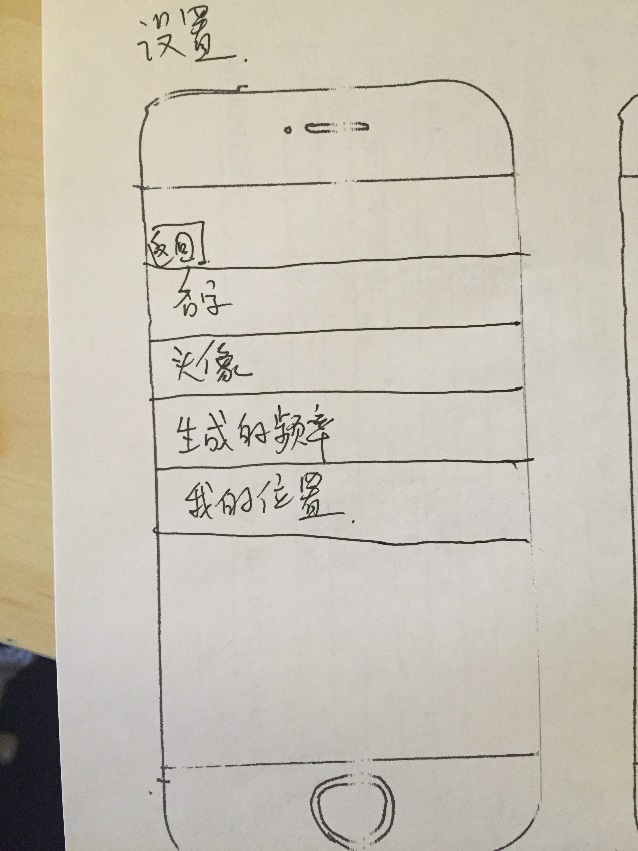 设置.
返回
名字
头像
生成的频率
我的位置.